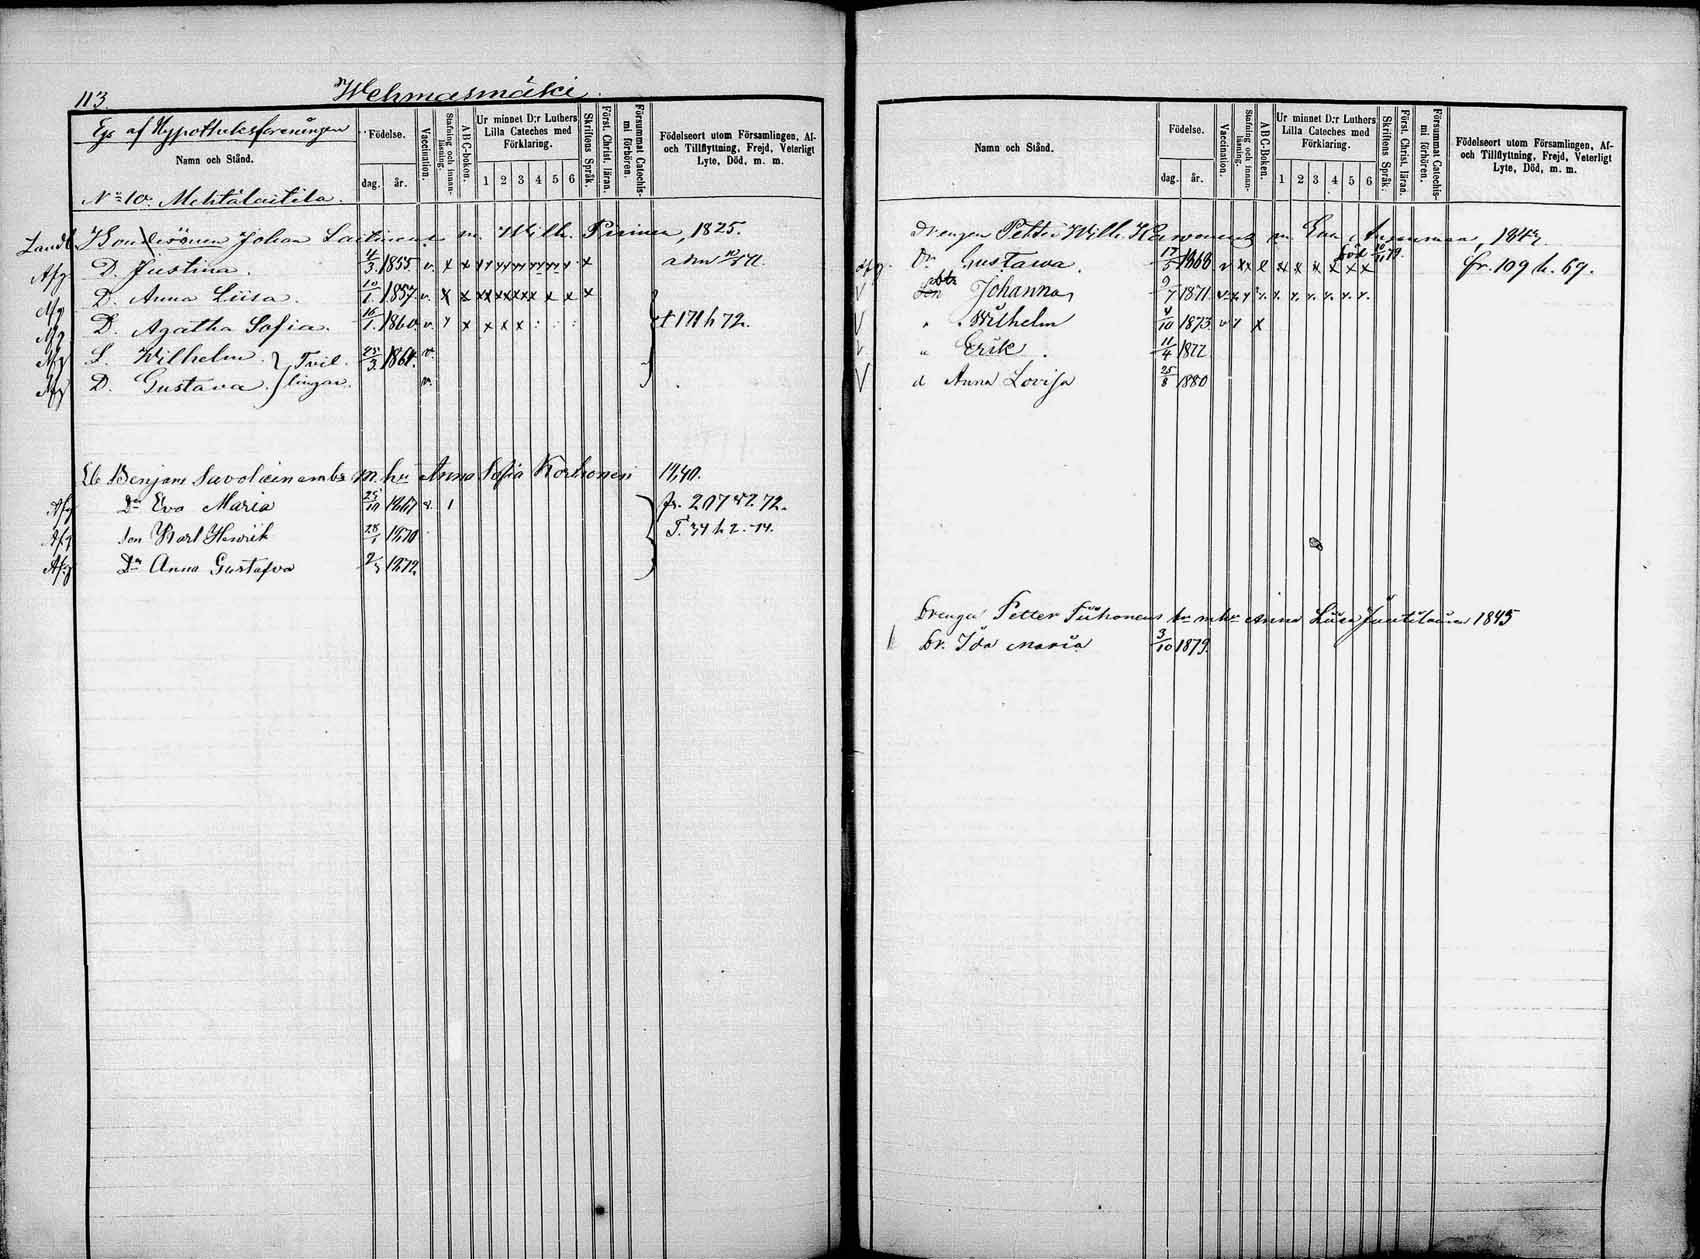 113
Wehmasmäki.
Egs af Hypotheksföreningen
Namn och Stånd.
Födelse.
dag. år.
Vaccination.
Stafning och innan-läsning.
A B C-boken.
Ur minnet D:r Luthers Lilla Cateches med Förklaring.
1 2 3 4 5 6
Skriftens Språk.
Först. Christ. läran.
Försummat Catechis-mi förhören.
Födelseort utom Församlingen, Af- och Tillflyttning, Frejd, Veterligt Lyte, Död, m. m.
No 10. Mehtälaitila.
Landb. Bondesonen Johan Laitinens m. Wilh. Pirinen, 1825.
Afg D. Justina. 4/3 1855. v. x x x x
Afg D. Anna Liisa. 10/1 1857. v. x x x x x x x x x
Afg D. Agatha Sofia. 16/1 1860. v. x x x x : : : t 171 h 72.
Afg S. Wilhelm. } Tvil- 25/3 1864. v.
Afg D. Gustava. } lingar. v.
Lb Benjam Savolainens m. hu Anna Sofia Korhonen 1840.
Afg Dr Eva Maria 25/10 1867 v. 1 fr. 207 v 2. 72.
Afg Son Karl Henrik 28/1 1870 T. 34 h 2. -74.
Afg Dr Anna Gustafva 2/5 1872.
Namn och Stånd.
Födelse.
dag. år.
Vaccination.
Stafning och innan-läsning.
A B C-Boken.
Ur minnet D:r Luthers Lilla Cateches med Förklaring.
1 2 3 4 5 6
Skriftens Språk.
Först. Christ. läran.
Försummat Catechis-mi förhören.
Födelseort utom Församlingen, Af- och Tillflyttning, Frejd, Veterligt Lyte, Död, m. m.
Drengen Petter Wilh. m Eva 1842.
afg. Dr. Gustawa. 17/5 1868 v x x x x x x x x x fr. 109 h. 69.
Dtr Johanna, 9/7 1871
" Wilhelm 4/10 1873 v x
" Erik. 11/4 1877
d Anna Lovisa 25/8 1880
Drengen Petter Tiihonens m hu Anna Liisa Juutilainen 1845
Dr. Ida Maria 3/10 1879.